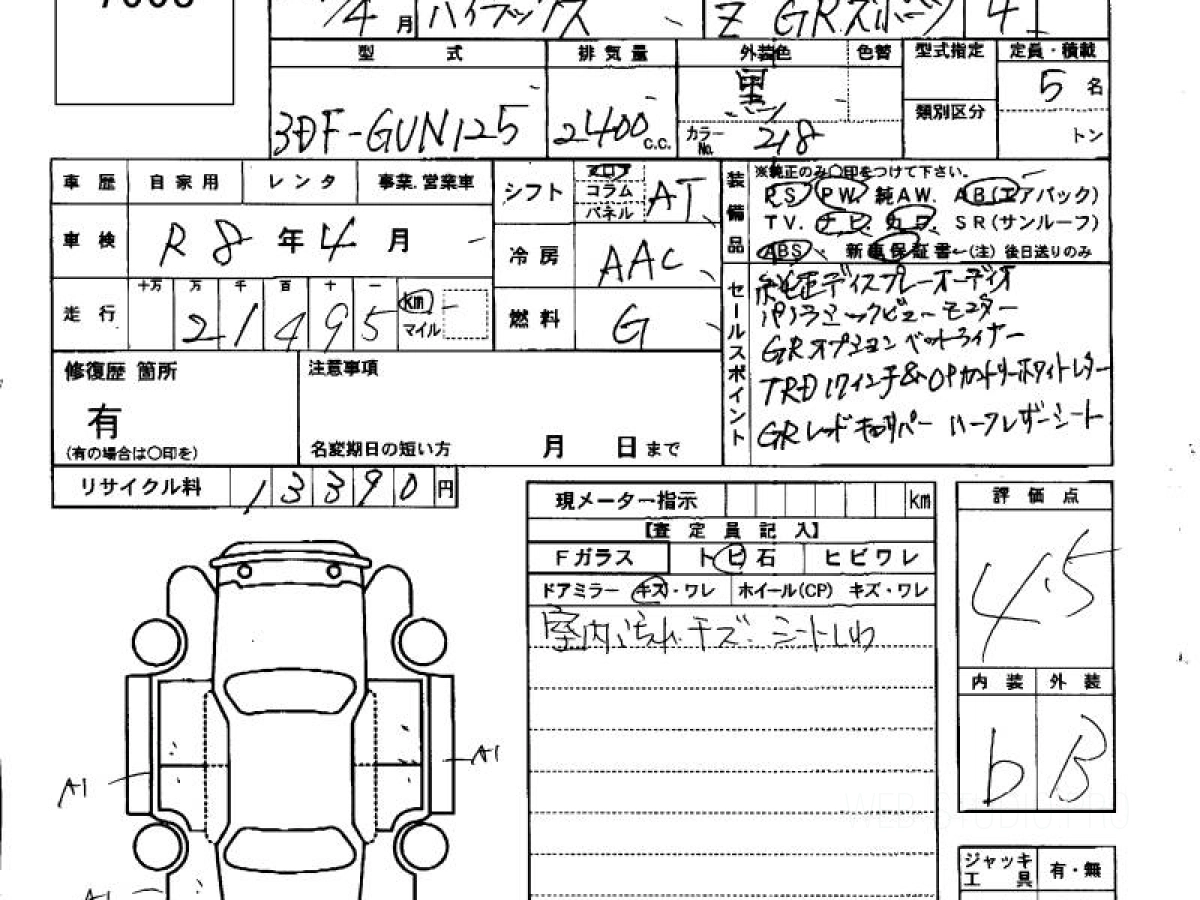 /4月 ハイラックス Z GRスポーツ 4
型式 排気量 外装色 色替 型式指定 定員・積載
3DF-GUN125 2400c.c. 黒 5名
カラーNo. 218 類別区分 トン
車歴 自家用 レンタ 事業.営業車
シフト フロア コラム パネル AT
装備品 ※純正のみ○印をつけて下さい。
PS PW. 純AW. AB(エアバッグ)
TV. ナビ. カワ. SR(サンルーフ)
ABS 新車保証書←(注) 後日送りのみ
車検 R8年4月
冷房 AAC
走行 十万 万 千 百 十 一
21495 km マイル
燃料 G
セールスポイント
純正ディスプレーオーディオ
パノラミックビューモニター
GRオプションベットライナー
TRD17インチ&OPカントリーホワイトレター
GRレッドキャリパー ハーフレザーシート
修復歴 箇所
有
(有の場合は○印を)
注意事項
名変期日の短い方 月 日まで
リサイクル料 13390円
現メーター指示 km
【査定員記入】
Fガラス トビ石 ヒビワレ
ドアミラー キズ・ワレ ホイール(CP) キズ・ワレ
室内よごれ.キズ. シートしわ
評価点
4.5
内装 外装
b B
A1
A1
A1
ジャッキ 工具 有・無